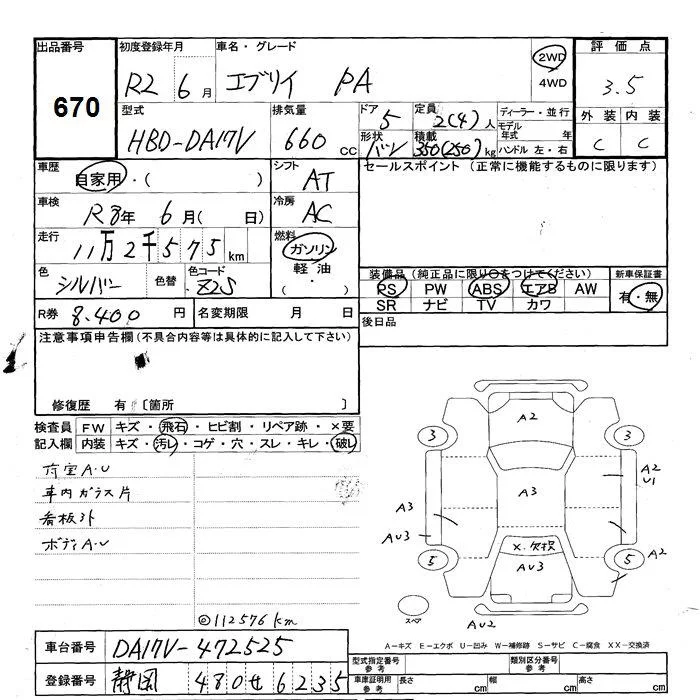 出品番号 初度登録年月 車名・グレード 評価点
670 R2 年 6月 エブリイ PA 2WD 4WD 3.5
型式 排気量 ドア 定員 ディーラー・並行 外装 内装
HBD-DA17V 660cc 5 2(4)人 モデル年式 年 C C
形状 バン 積載 350(250)kg ハンドル 左・右
車歴 自家用・( ) シフト AT セールスポイント (正常に機能するものに限ります)
車検 R8年 6月( 日) 冷房 AC
走行 11万2千575km 燃料 ガソリン 軽油 ・( )
色 シルバー 色替 色コード Z2S
装備品 (純正品に限り○をつけてください) 新車保証書
PS PW ABS エアB AW 有・無
SR ナビ TV カワ
R券 8.400円 名変期限 月 日 後日品
注意事項申告欄(不具合内容等は具体的に記入して下さい)
修復歴 有 〔箇所 〕
検査員 FW キズ・飛石・ヒビ割・リペア跡・×要
記入欄 内装 キズ・汚レ・コゲ・穴・スレ・キレ・破レ
荷室A.U
車内ガラス片
看板ヌケ
ボディA.U
◎112576km
A2
3 3
A2
U1
A3 A3
AU3 X.欠損
5 AU3 5 A2
スペア AU2
A-キズ E-エクボ U-凹み W-補修跡 S-サビ C-腐食 XX-交換済
車台番号 DA17V-472525 型式指定番号 参考 類別区分番号 参考
登録番号 静岡 480せ6235 車庫証明用 参考 長さ cm 幅 cm 高さ cm